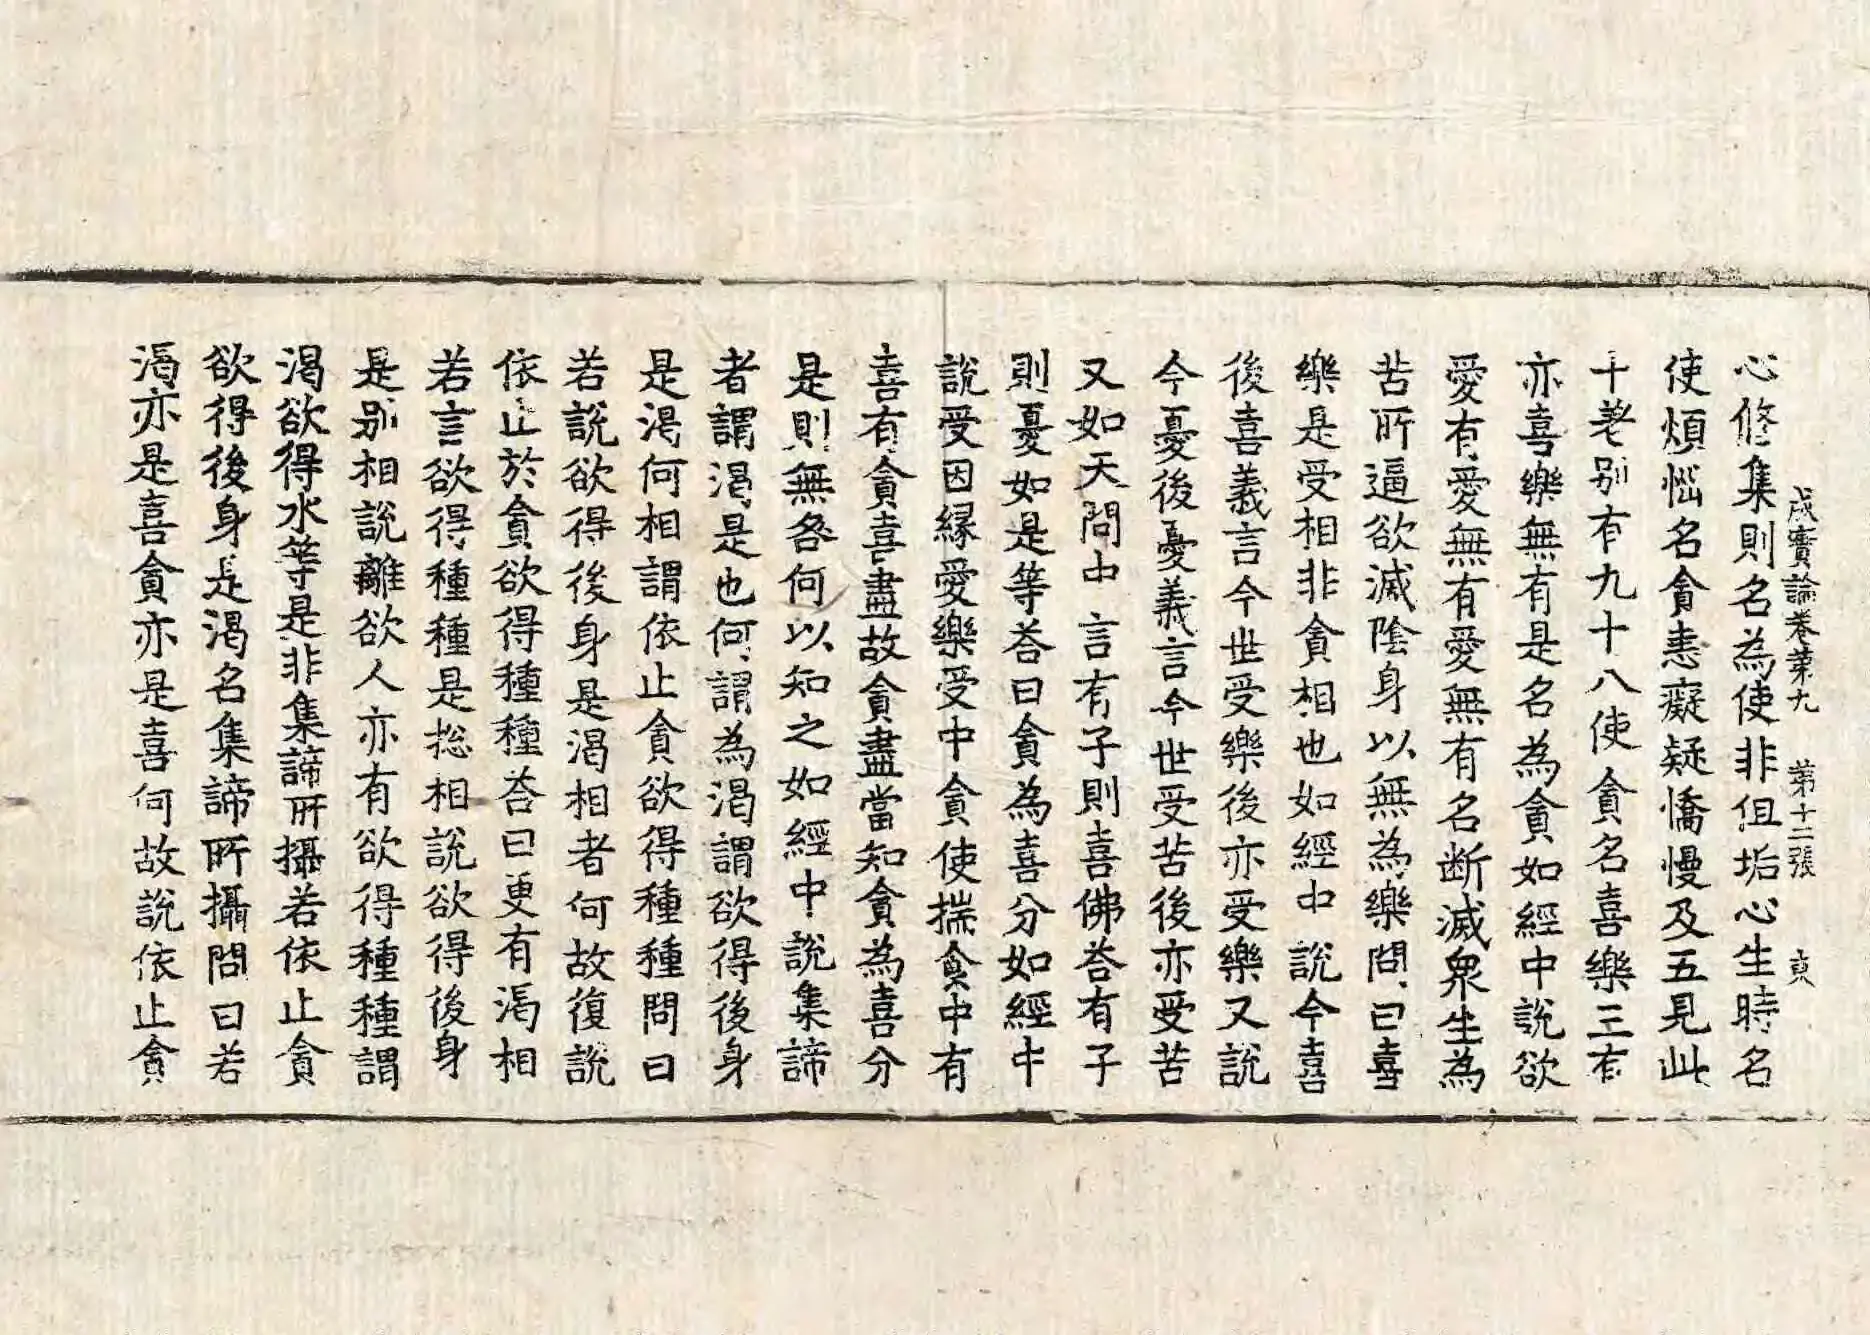 成實論卷第九 第十二張 㒵
心修集則名為使非但垢心生時名
使煩惱名貪恚癡疑憍慢及五見此
十差別有九十八使貪名喜樂三有
亦喜樂無有是名為貪如經中說欲
愛有愛無有愛無有名断滅衆生為
苦所逼欲滅陰身以無為樂問曰喜
樂是受相非貪相也如經中說今喜
後喜義言今世受樂後亦受樂又說
今憂後憂義言今世受苦後亦受苦
又如天問中言有子則喜佛荅有子
則憂如是等荅曰貪為喜分如經中
說受因縁愛樂受中貪使揣貪中有
喜有貪喜盡故貪盡當知貪為喜分
是則無咎何以知之如經中說集諦
者謂渴是也何謂為渴謂欲得後身
是渴何相謂依止貪欲得種種問曰
若說欲得後身是渴相者何故復說
依止於貪欲得種種荅曰更有渴相
若言欲得種種是揔相說欲得後身
是別相說離欲人亦有欲得種種謂
渴欲得水等是非集諦所攝若依止貪
欲得後身是渴名集諦所攝問曰若
渴亦是喜貪亦是喜何故說依止貪